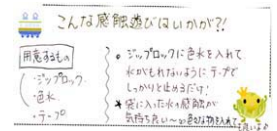 こんな感触遊びはいかが?!
用意するもの
・ジップロック
・色水
・テープ
。ジップロックに色水を入れて
水がもれないように テープで
しっかりと止めるだけ!
*袋に入った水の感触が
気持ち良い〜 色々な物を入れても
良いよ♪